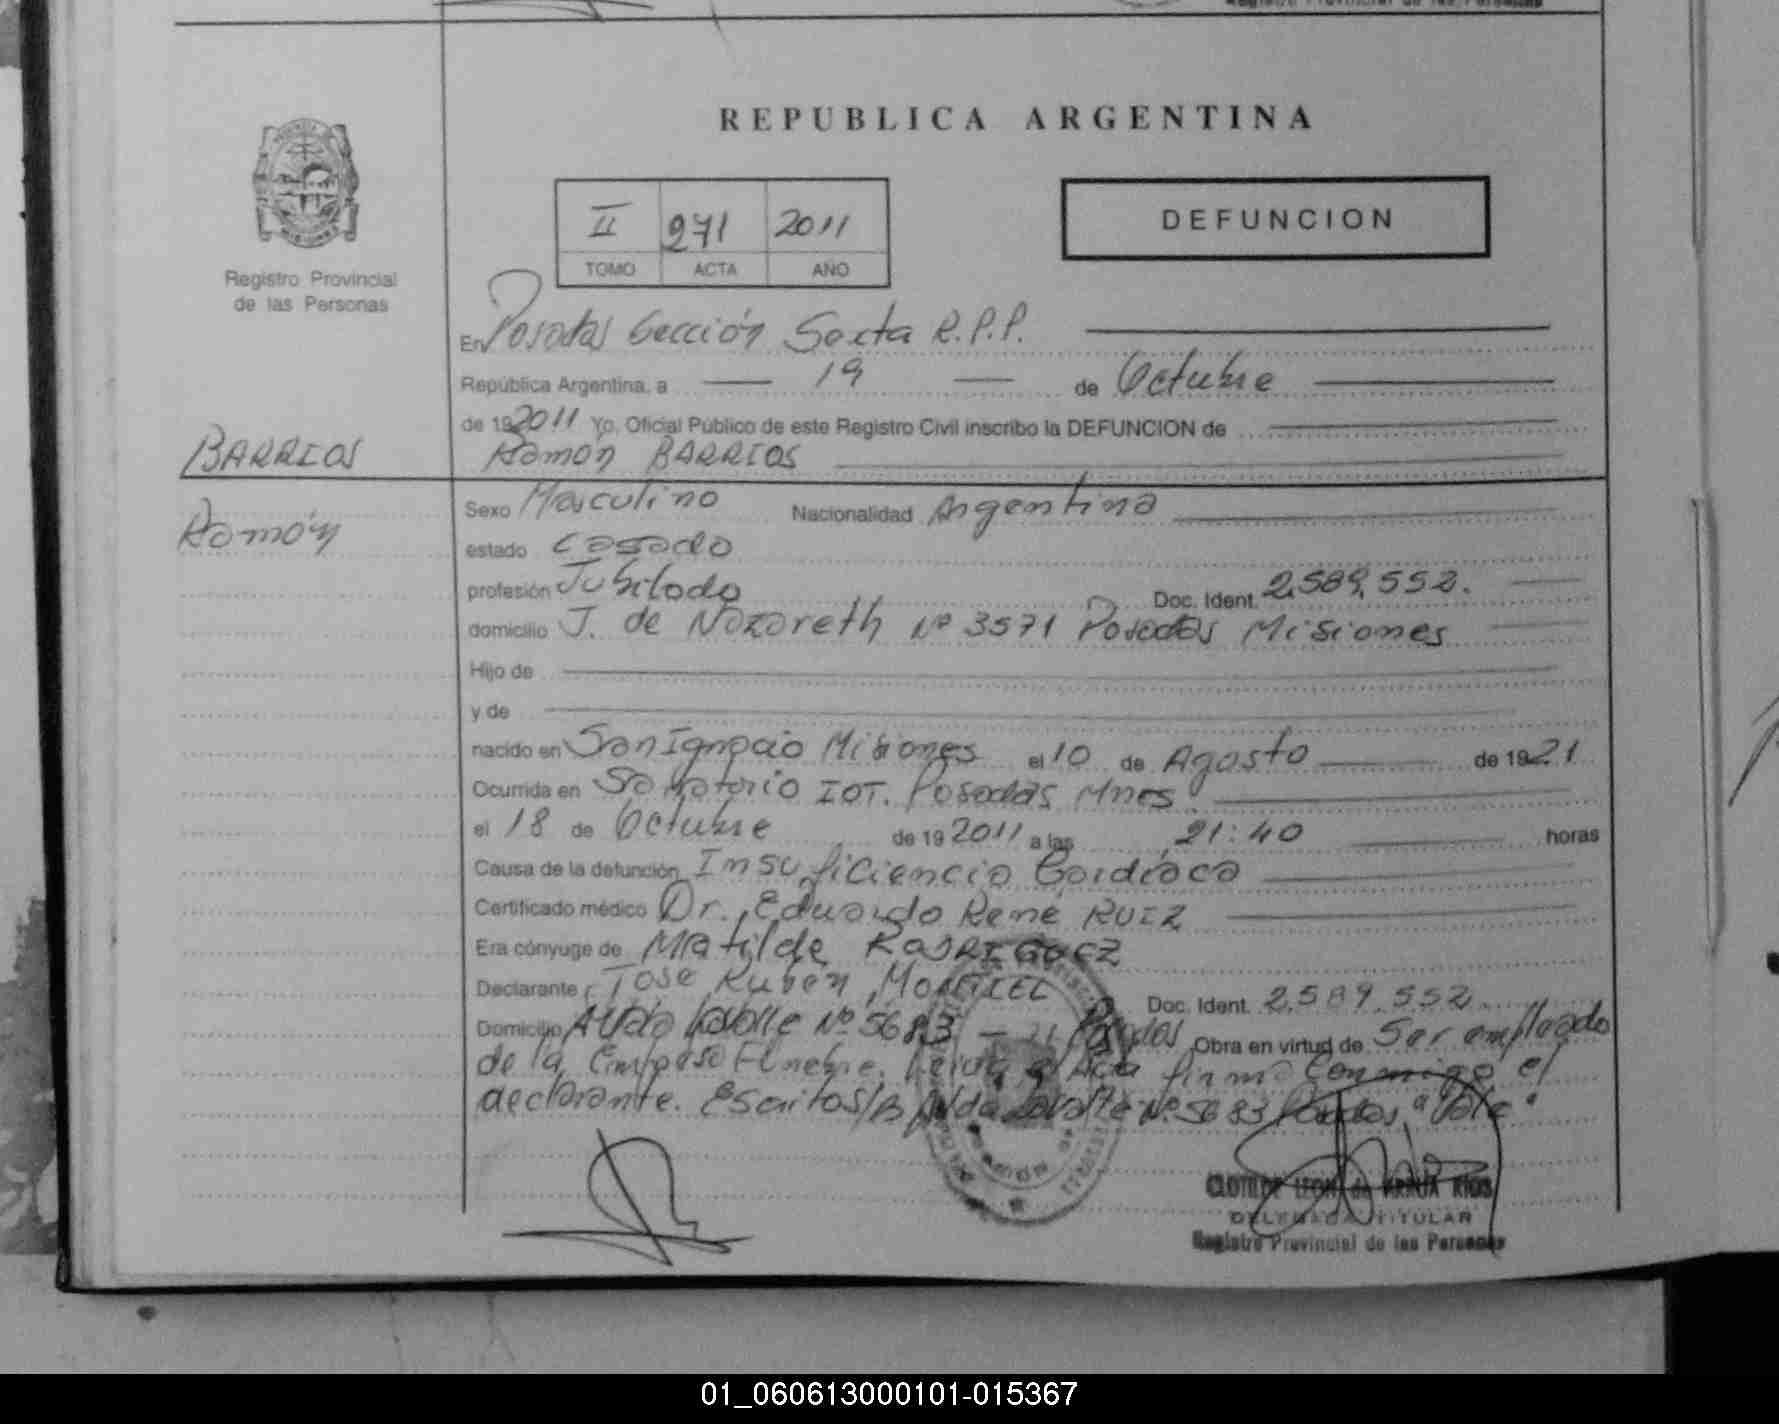 Registro Provincial de las Personas
REPUBLICA ARGENTINA
II 271 2011
TOMO ACTA AÑO
DEFUNCION
Registro Provincial
de las Personas
En Posadas Sección Sexta R.P.P.
República Argentina, a 19 de Octubre
de 19 2011 Yo, Oficial Público de este Registro Civil inscribo la DEFUNCION de
BARRIOS Ramón BARRIOS
Ramón
Sexo Masculino Nacionalidad Argentina
estado Casado
profesión Jubilado Doc. Ident. 2.589.552.
domicilio J. de Nazareth Nº 3571 Posadas Misiones
Hijo de
y de
nacido en San Ignacio Misiones el 10 de Agosto de 1921
Ocurrida en Sanatorio IOT. Posadas Mnes.
el 18 de Octubre de 19 2011 a las 21:40 horas
Causa de la defunción Insuficiencia Cardíaca
Certificado médico Dr. Eduardo René RUIZ
Era cónyuge de Matilde RODRIGUEZ
Declarante José Rubén MONTIEL Doc. Ident. 2.589.552
Domicilio Avda Lavalle Nº 5683 - Posadas Obra en virtud de Ser empleado
de la Empresa Fúnebre. Leída el Acta firma Conmigo el
declarante. Escritos/B Avda Lavalle Nº 5683 Posadas "Vale"
CLOTILDE LEON de ARRUA RIOS
DELEGADA TITULAR
Registro Provincial de las Personas
01_060613000101-015367